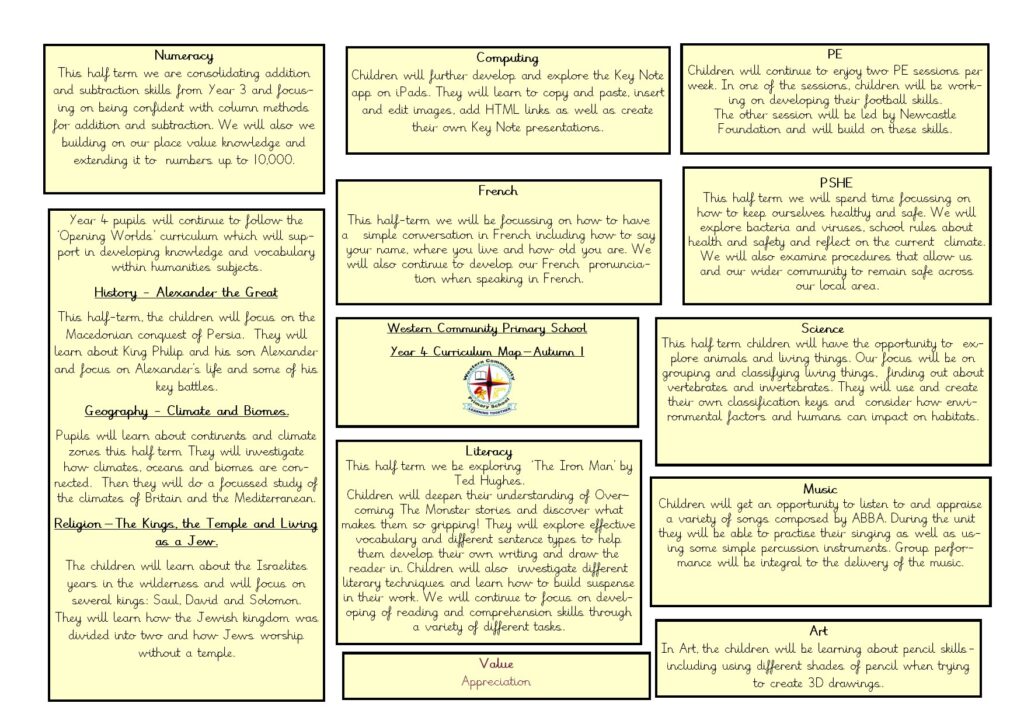 Numeracy
This half term we are consolidating addition
and subtraction skills from Year 3 and focus-
ing on being confident with column methods
for addition and subtraction. We will also we
building on our place value knowledge and
extending it to numbers up to 10,000.
Year 4 pupils will continue to follow the
'Opening Worlds' curriculum which will sup-
port in developing knowledge and vocabulary
within humanities subjects.
History - Alexander the Great
This half-term, the children will focus on the
Macedonian conquest of Persia. They will
learn about King Philip and his son Alexander
and focus on Alexander's life and some of his
key battles.
Geography - Climate and Biomes.
Pupils will learn about continents and climate
zones this half term They will investigate
how climates, oceans and biomes are con-
nected. Then they will do a focussed study of
the climates of Britain and the Mediterranean.
Religion—The Kings, the Temple and Living
as a Jew.
The children will learn about the Israelites
years in the wilderness and will focus on
several kings: Saul, David and Solomon.
They will learn how the Jewish kingdom was
divided into two and how Jews worship
without a temple.
Computing
Children will further develop and explore the Key Note
app on iPads. They will learn to copy and paste, insert
and edit images, add HTML links as well as create
their own Key Note presentations.
French
This half-term we will be focussing on how to have
a simple conversation in French including how to say
your name, where you live and how old you are. We
will also continue to develop our French pronuncia-
tion when speaking in French.
Western Community Primary School
Year 4 Curriculum Map—Autumn 1
Western Community
Primary School
LEARNING TOGETHER
Literacy
This half term we be exploring 'The Iron Man' by
Ted Hughes.
Children will deepen their understanding of Over-
coming The Monster stories and discover what
makes them so gripping! They will explore effective
vocabulary and different sentence types to help
them develop their own writing and draw the
reader in. Children will also investigate different
literary techniques and learn how to build suspense
in their work. We will continue to focus on devel-
oping of reading and comprehension skills through
a variety of different tasks.
Value
Appreciation
PE
Children will continue to enjoy two PE sessions per
week. In one of the sessions, children will be work-
ing on developing their football skills.
The other session will be led by Newcastle
Foundation and will build on these skills.
PSHE
This half term we will spend time focussing on
how to keep ourselves healthy and safe. We will
explore bacteria and viruses, school rules about
health and safety and reflect on the current climate.
We will also examine procedures that allow us
and our wider community to remain safe across
our local area.
Science
This half term children will have the opportunity to ex-
plore animals and living things. Our focus will be on
grouping and classifying living things, finding out about
vertebrates and invertebrates. They will use and create
their own classification keys and consider how envi-
ronmental factors and humans can impact on habitats.
Music
Children will get an opportunity to listen to and appraise
a variety of songs composed by ABBA. During the unit
they will be able to practise their singing as well as us-
ing some simple percussion instruments. Group perfor-
mance will be integral to the delivery of the music.
Art
In Art, the children will be learning about pencil skills-
including using different shades of pencil when trying
to create 3D drawings.